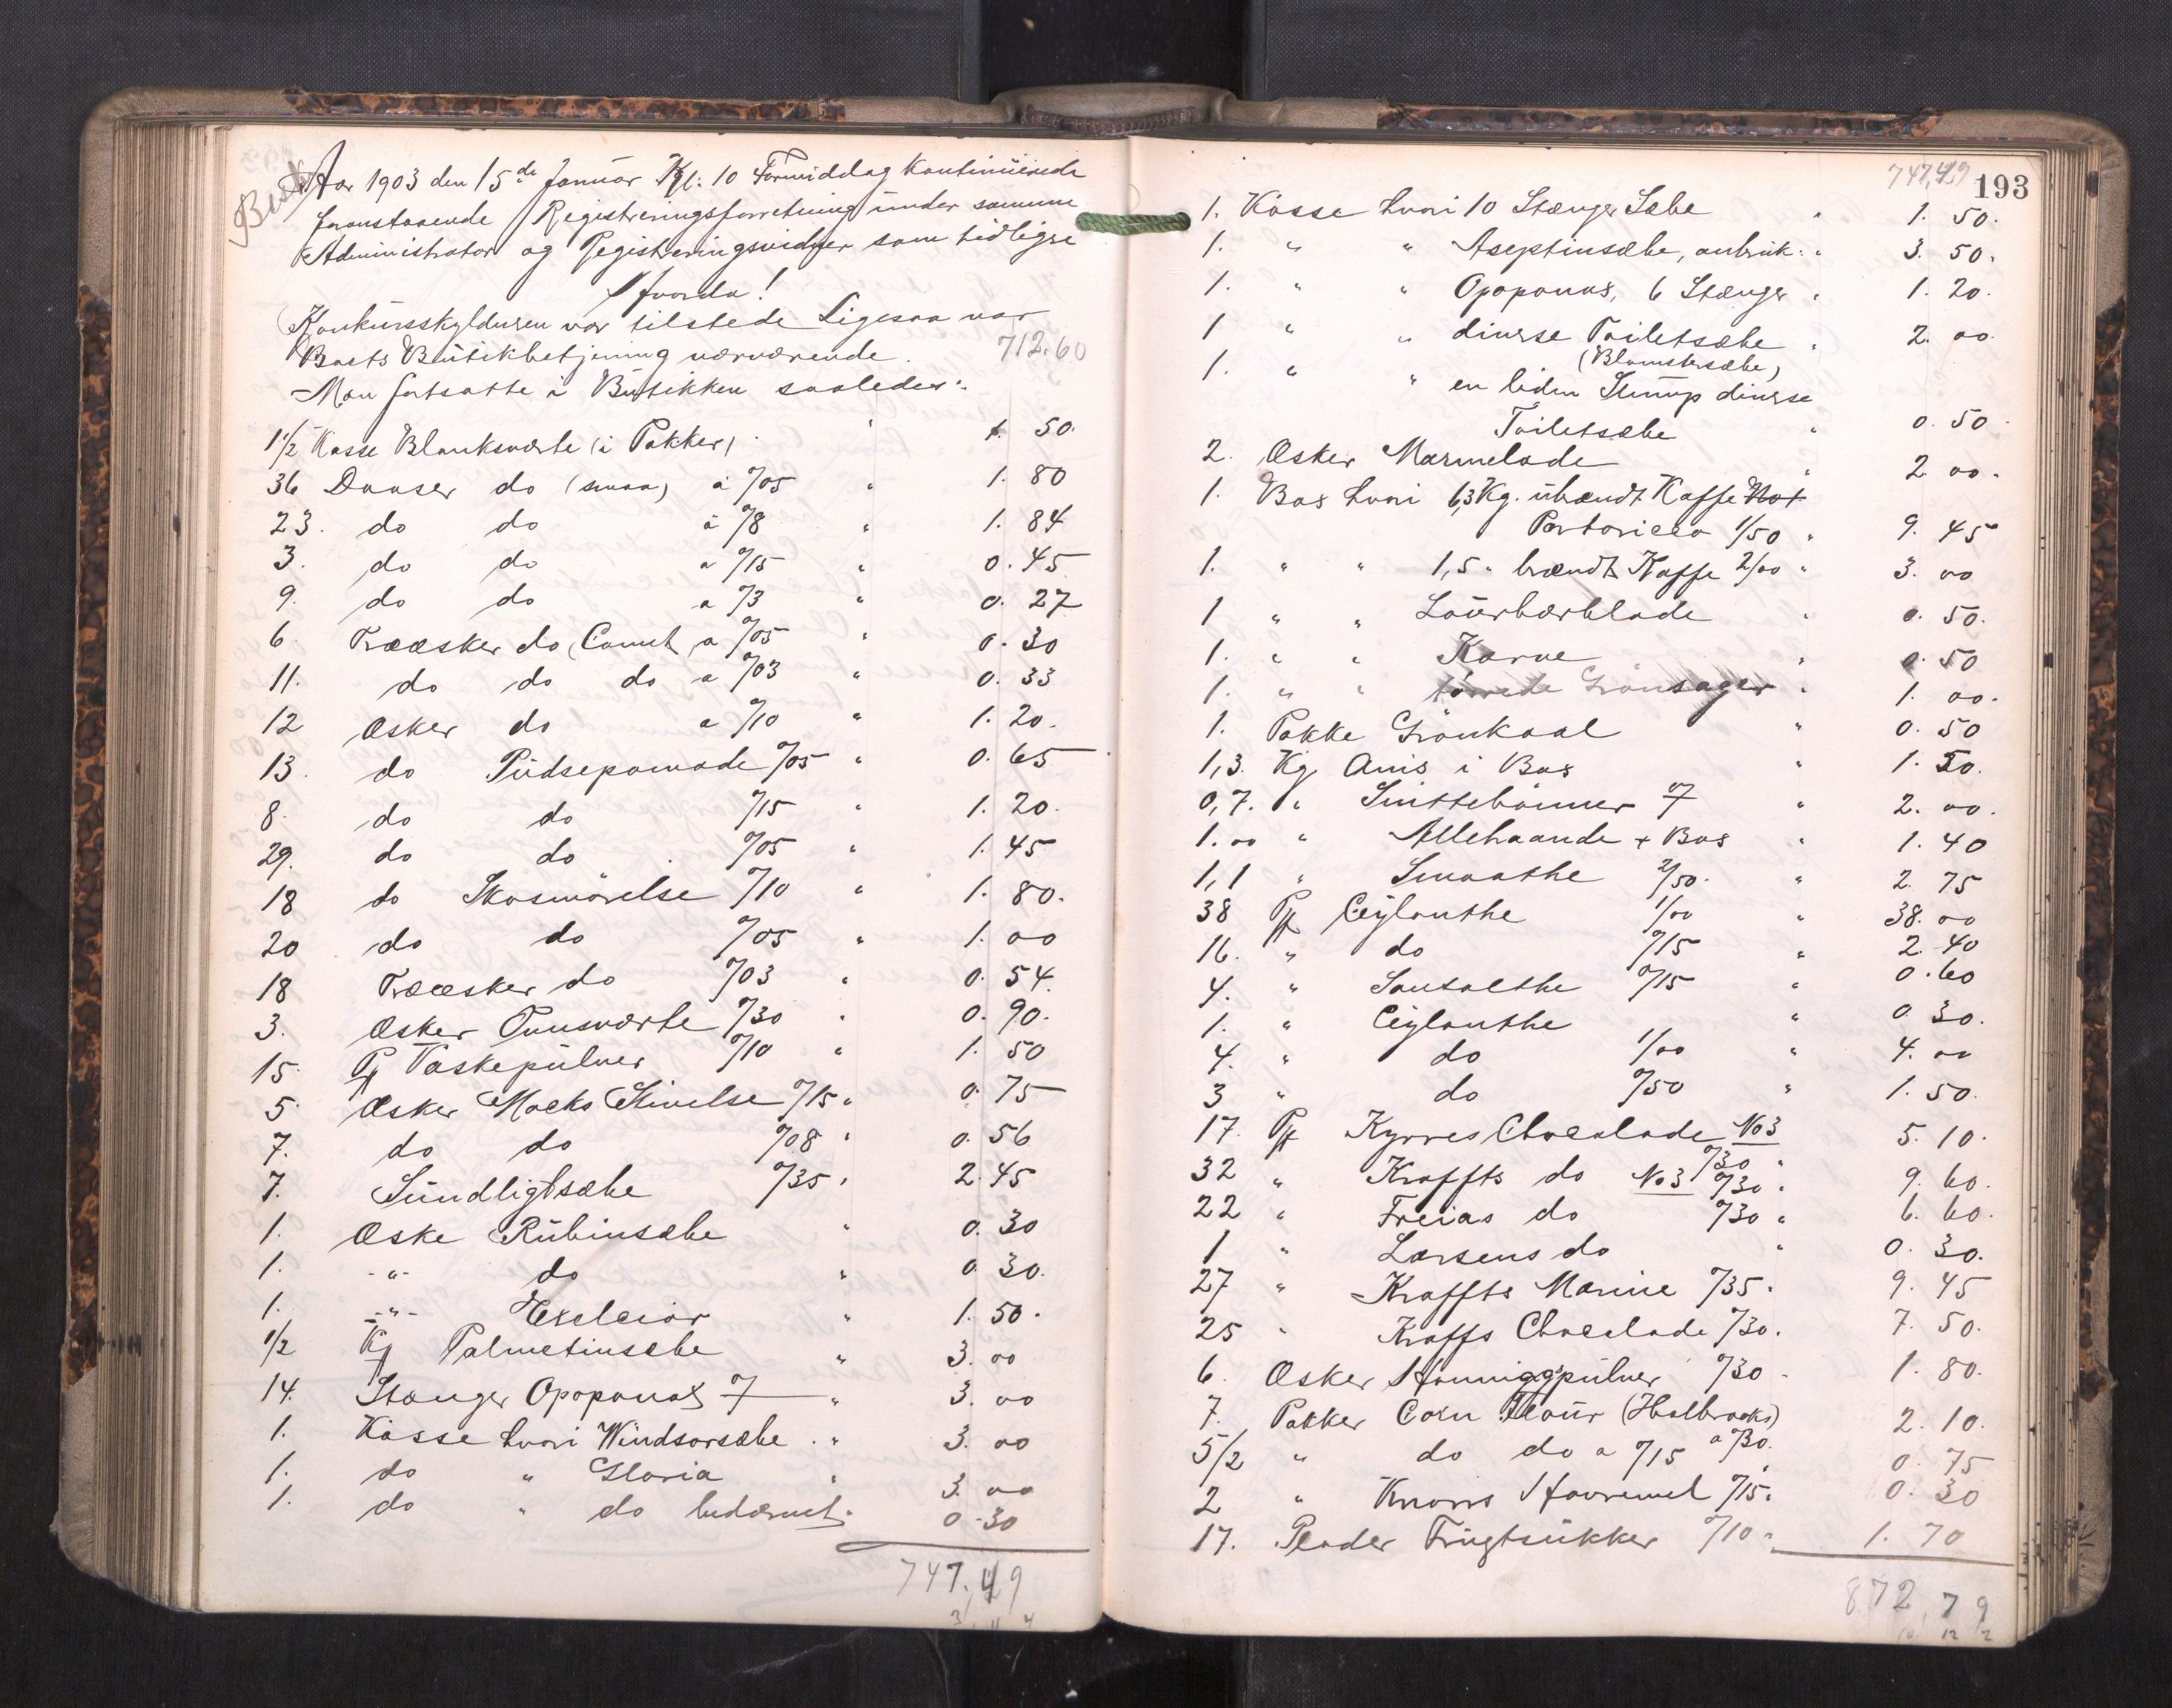 Aar 1903 den 15de Januar Kl: 10 Formiddag kontinuerede
foranstaaende Registreringsforretning under samme
Administrator og Registreringsvidner som tidligere
Konkursskyldneren var tilstede Ligesaa var
Basts Butikbetjening nærværende. 712.60
Man fortsatte i Butikken saaledes:
1 1/2 Kasse Blanksværte (i Pakker) " 1. 50.
36 Daaser do (smaa) à %05 " 1. 80
23. do do à %8 " 1. 84
3. do do a %15 " 0. 45
9. do do a %3 " 0. 27
6 Træesker do, a %05 " 0. 30
11. do do do a %03 " 0. 33
12 Æsker do a %10 " 1. 20.
13. do Pudsepomade %05 " 0. 65
8. do do %15 " 1. 20.
29. do do %05 " 1. 45
18 do Skosmörelse %10 " 1. 80.
20 do do %05 " 1. 00
18 Træesker do %03 " 0. 54.
3. Æsker Ovnsværte %30 " 0. 90.
15. Pk Vaskepulver %10 " 1. 50
5. Æsker Macks Stivelse %15 " 0. 75
7. do do %08 " 0. 56
7. Sundligtsæbe %35 " 2. 45
1. Æske Rubinsæbe " 0. 30
1. -"- do " 0. 30.
1. -"- Exelcior " 1. 50.
1/2 Kg Palmetinsæbe " 3. 00
14. Stænger Opoponax % " 3. 00
1. Kasse hvori Windsorsæbe " 3. 00
1. do " Gloria " 3. 00
1. do " do bedærvet " 0. 30
747,49
747,49 193
1. Kasse hvori 10 Stænger Sæbe " 1. 50.
1. " " Aseptinsæbe, anbruk: " 3. 50.
1. " " Opoponax, 6 Stænger " 1. 20.
1 " " diverse Toiletsæbe " 2. 00
(Blomstersæbe)
1. " " en liden Slump diverse
Toiletsæbe " 0. 50
2. Æsker Marmelade " 2 00.
1. Bos hvori 6,3 Kg. ubrændt Kaffe
Portorico 1/50 " 9. 45
1. " " 1,5 " brændt Kaffe 2/00 " 3. 00
1 " " Laurbærblade " 0. 50.
1. " " Karve " 0. 50
1. " " tørrede Grönsager " 1. 00.
1. Pakke Grönkaal " 0. 50
1,3. Kg Anis i Bos " 1. 50.
0,7. " Snittebönner % " 2. 00.
1.00 " Allehaande + Bos " 1. 40
1,1 " Smaathe 2/50. " 2. 75
38 Pk Ceylonthe 1/00 " 38. 00
16. " do %15 " 2. 40
4. " %15 " 0. 60
1. " Ceylonthe " 0. 30.
4. " do 1/00 " 4. 00
3 " do %50 " 1. 50.
17. Pk Kyrres Chocolade No 3 5. 10.
%30 "
32 " Kraffts do No 3 %30. 9. 60.
22 " Freias do %30 " 6. 60.
1 " Larsens do " 0. 30.
27 " Kraffts Marine %35. 9. 45
25 " Kraffs Chocolade %30. 7. 50.
6. Æsker Honnigpulver %30 1. 80.
7. Pakker Corn Flour (Holbrooks) 2. 10.
a %30.
5/2 " do do a %15 0. 75
2 " Knorrs Havremel %15. 0. 30
17. Plader Frugtsukker %10. 1. 70
872,79